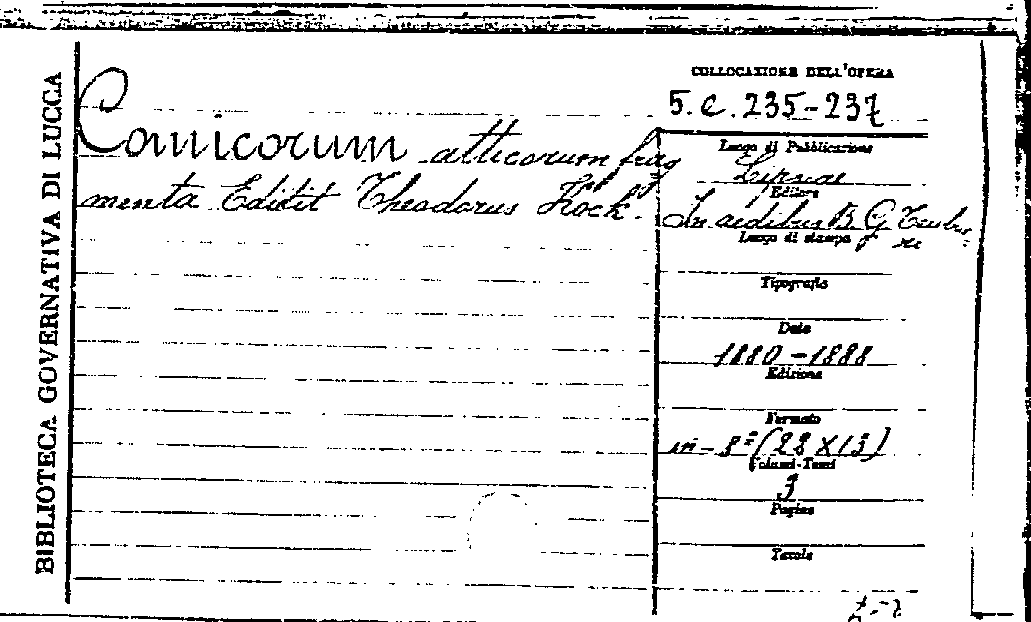 BIBLIOTECA GOVERNATIVA DI LUCCA
Comicorum atticorum frag
menta Edidit Theodorus Kock.
COLLOCAZIONE DELL'OPERA
5. C. 235-237
Luogo di Pubblicazione
Lipsiae
Editore
In aedibus B. G. Teubne
ri
Luogo di stampa
Tipografia
Data
1880-1888
Edizione
Formato
in-8º (28 X 13)
Volumi-Tomi
3
Pagine
Tavole